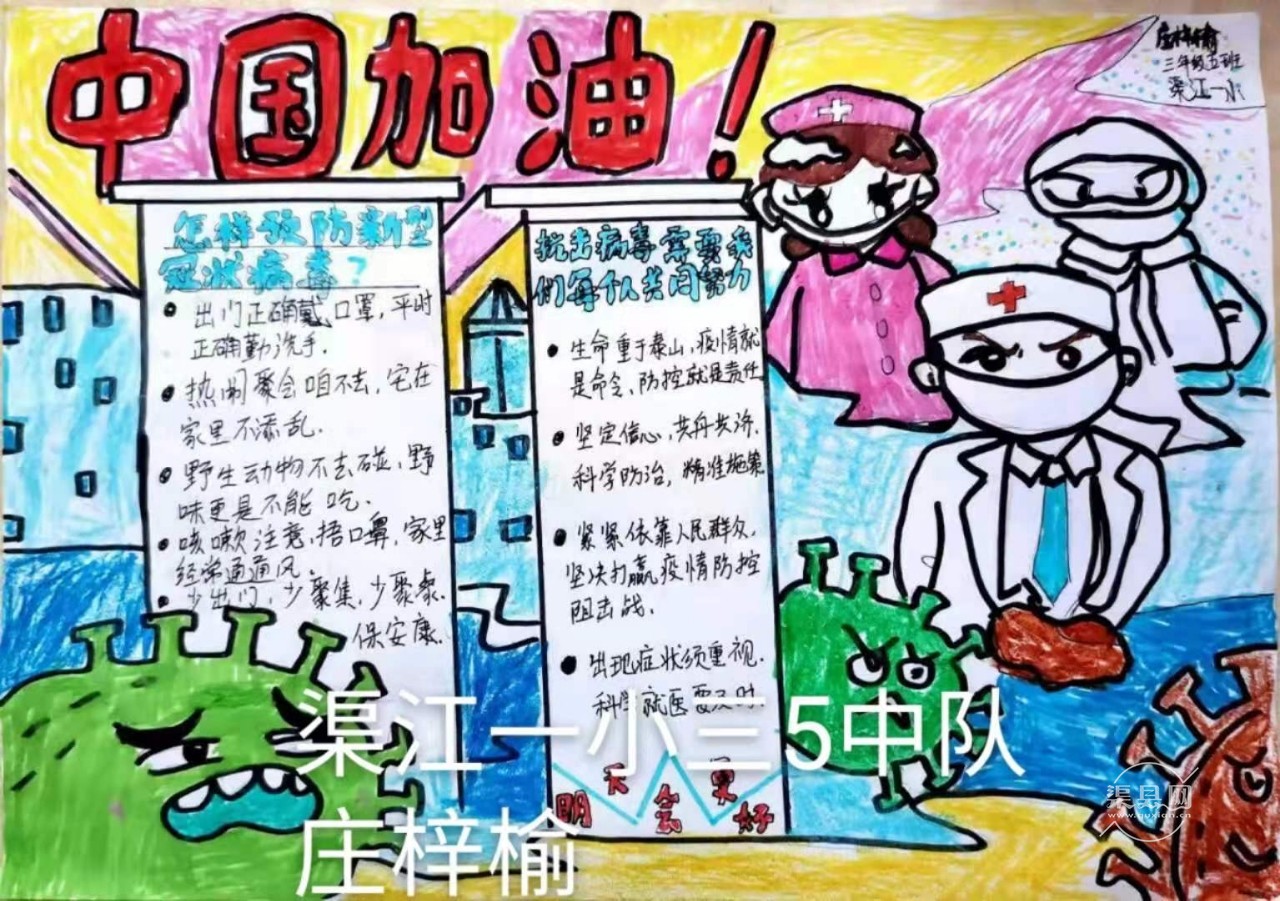 中国加油！
庄梓榆
三年级五班
渠江一小
怎样预防新型
冠状病毒？
出门正确戴口罩，平时
正确勤洗手.
热闹聚会咱不去，宅在
家里不添乱.
野生动物不去碰，野
味更是不能吃.
咳嗽注意捂口鼻，家里
经常通通风.
少出门，少聚集，少聚餐.
保安康.
抗击病毒需要我
们每个人共同努力
生命重于泰山，疫情就
是命令，防控就是责任
坚定信心，共舟共济.
科学防治，精准施策
紧紧依靠人民群众，
坚决打赢疫情防控
阻击战.
出现症状须重视.
科学就医要及时
明天会更好
渠江一小三5中队
庄梓榆
渠县网
www.quxian.cn